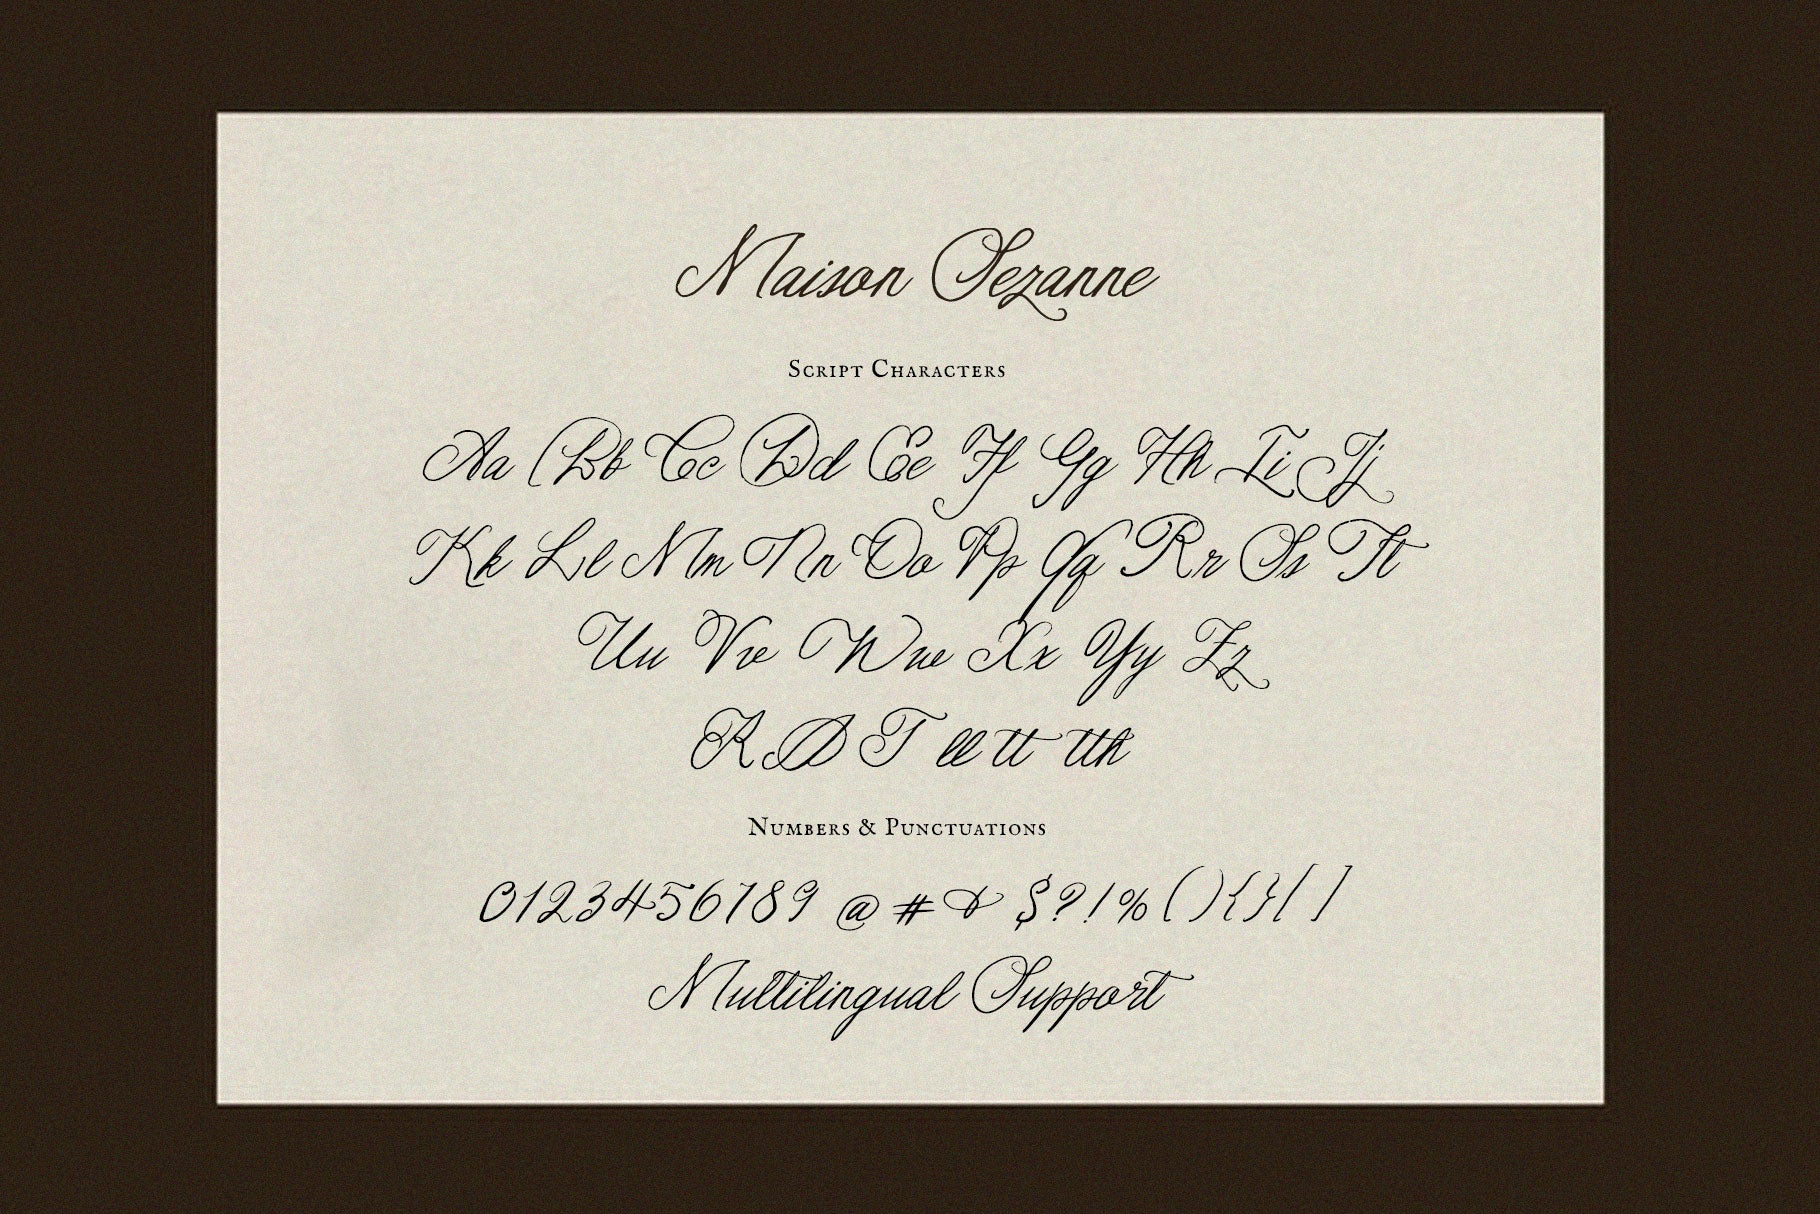 Maison Sezanne
Script Characters
Aa Bb Cc Dd Ee Ff Gg Hh Ii Jj
Kk Ll Mm Nn Oo Pp Qq Rr Ss Tt
Uu Vv Ww Xx Yy Zz
R D T ll tt tth
Numbers & Punctuations
0123456789 @ # & $ ? ! % ( ) { } [ ]
Multilingual Support